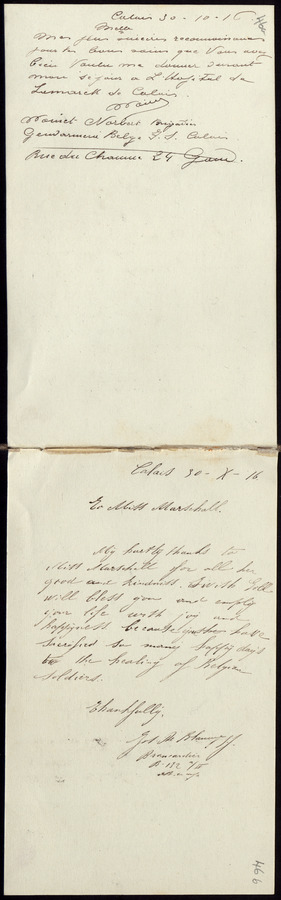 Calais 30-10-16
466
Melle
Mes plus sincères reconnaissances
pour les bons soins que Vous avez
bien voulu me donner durant
mon séjour a L'Hopital de
Lamarck de Calais.
Norbert Brigadier
Gendarmerie Belge Calais
Rue du Chaume 24 Gand.
Calais 30 - X - 16
To Miss Marshall.
My hartly thanks to
Miss Marshall for all her
good and kindness. I wish God
will bless you and
your life with joy and
happyness because you have
sacrified so many happy days
to the healing of Belgian
soldiers.
Thankfully.
Brancardier
B-122
466